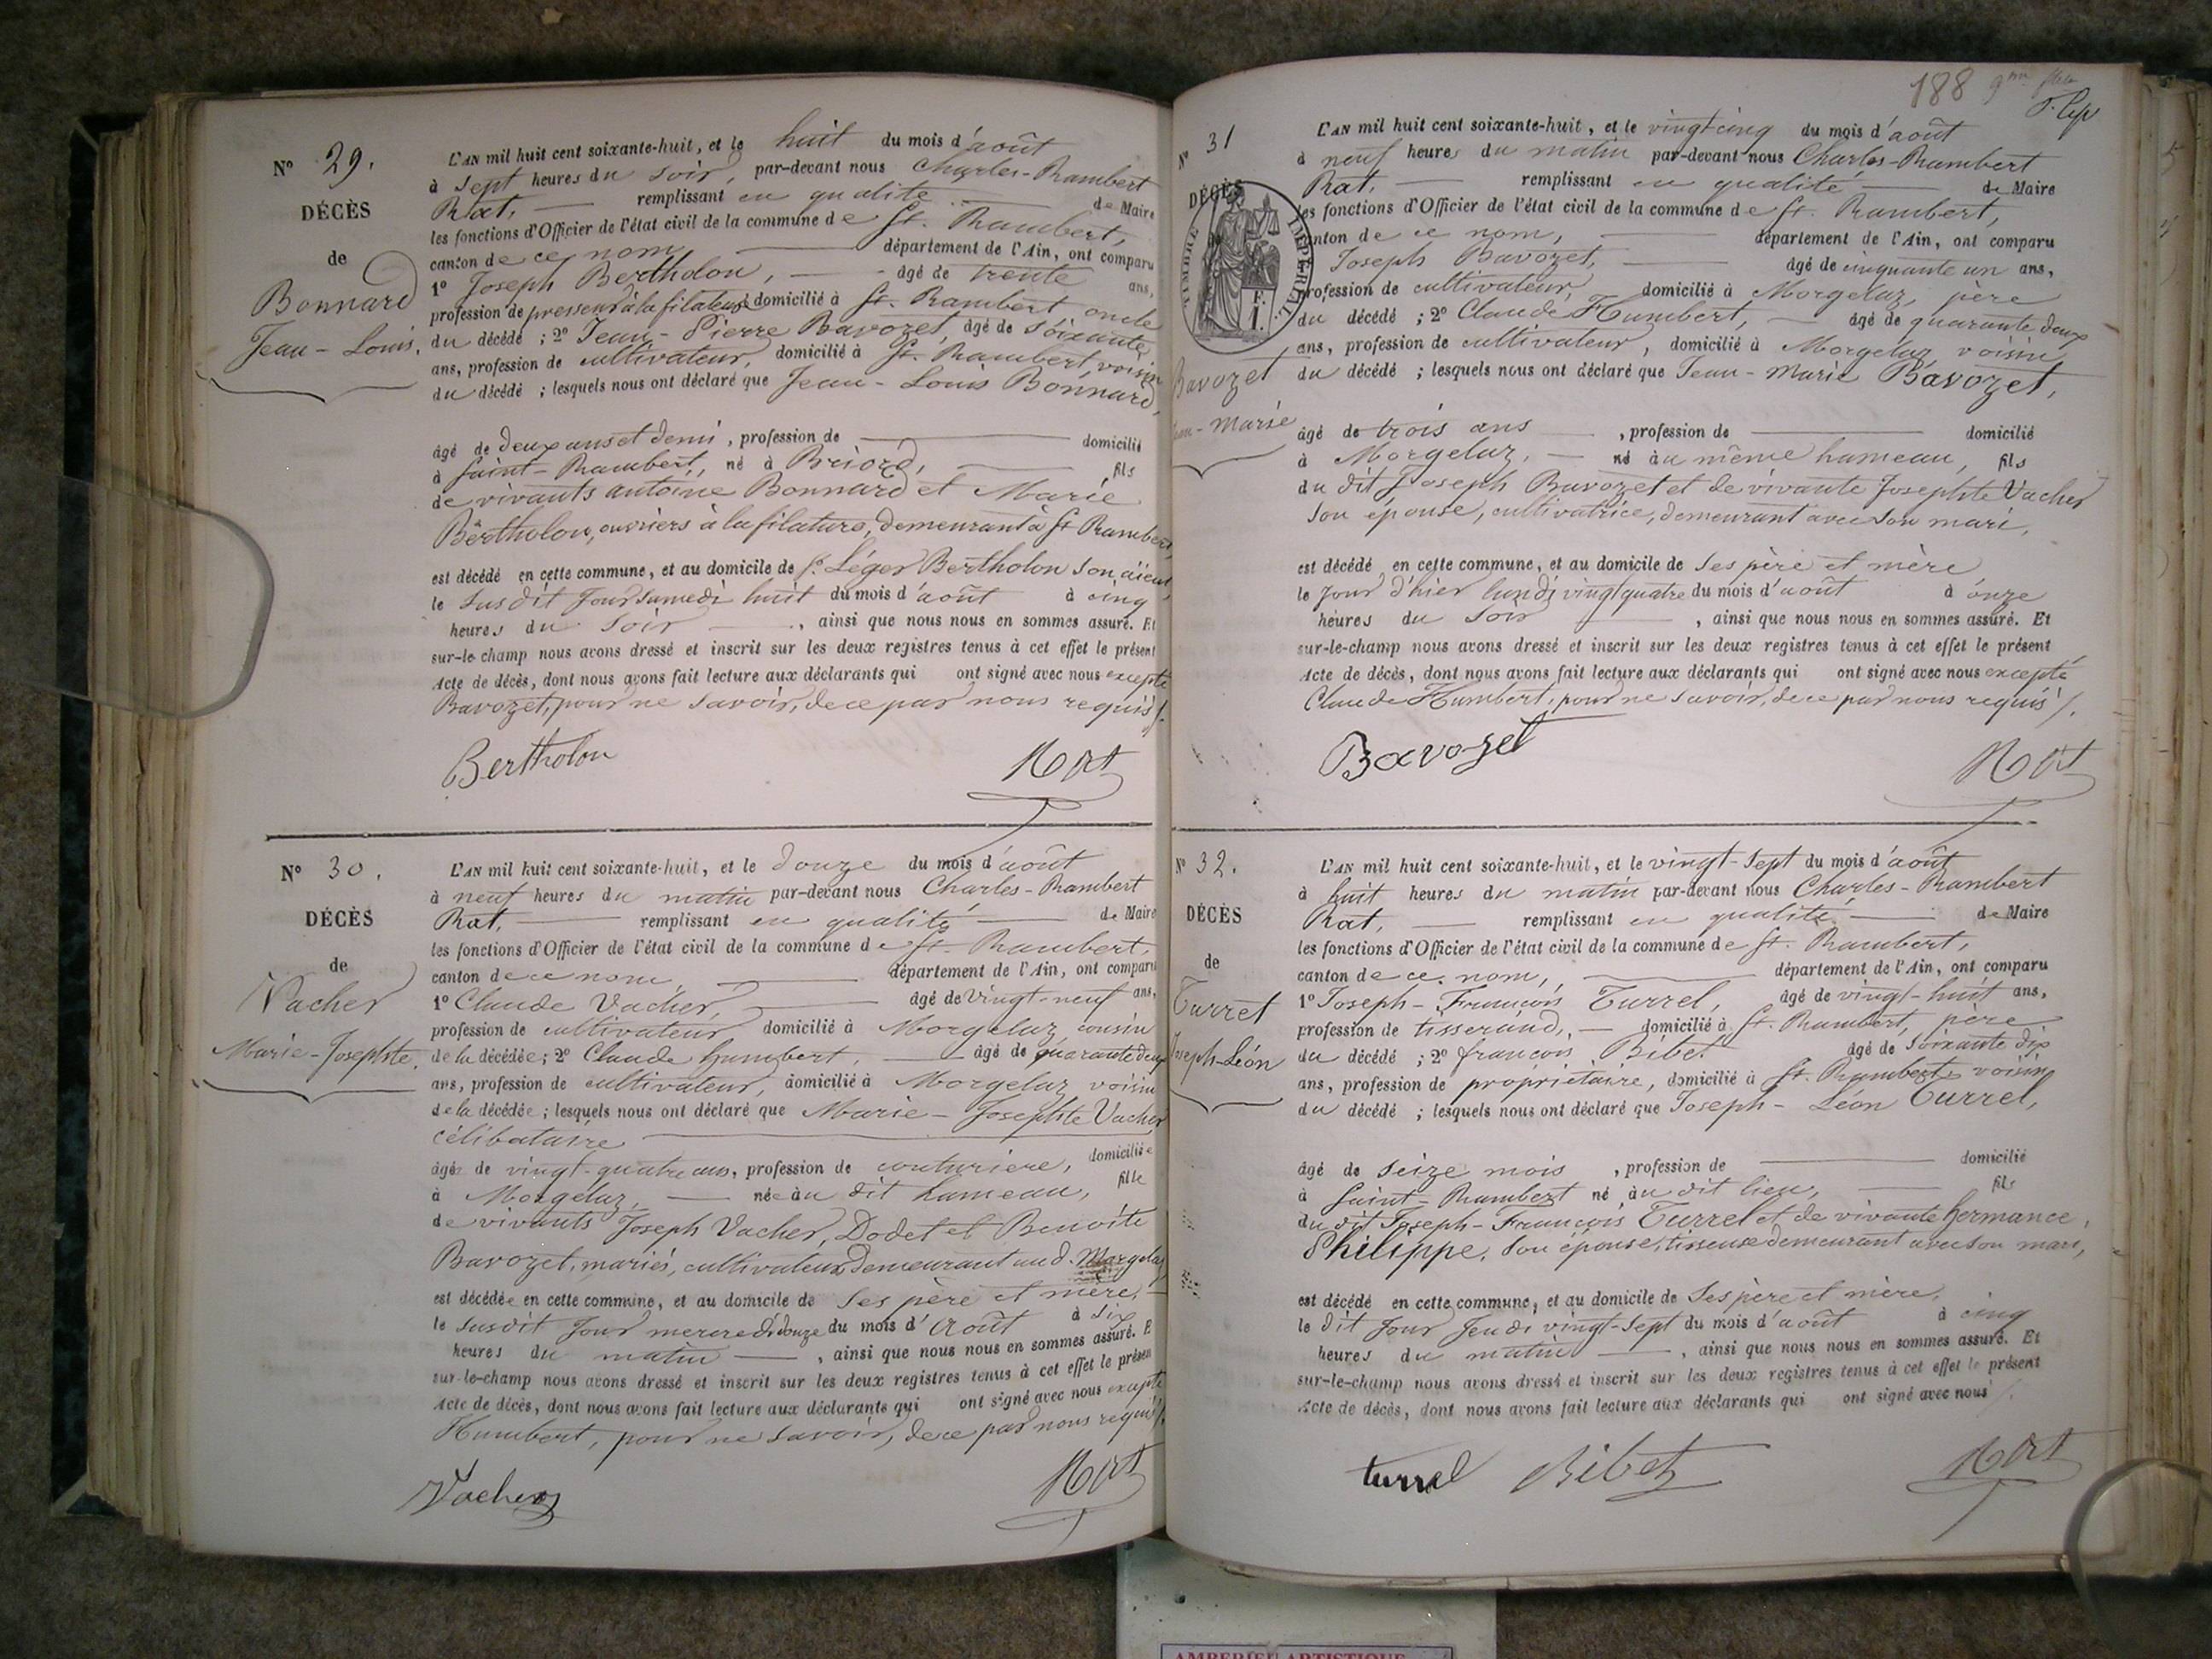 N° 29.
DÉCÈS
de
Bonnard
Jean-Louis.
L'AN mil huit cent soixante-huit, et le huit du mois d'août
à sept heures du soir, par-devant nous Charles-Rambert
Rat, remplissant en qualité de Maire
les fonctions d'Officier de l'état civil de la commune de St. Rambert,
canton de ce nom, département de l'Ain, ont comparu
1° Joseph Bertholon, âgé de trente ans,
profession de presseur à la filature domicilié à St. Rambert oncle
du décédé ; 2° Jean-Pierre Bavozet, âgé de soixante
ans, profession de cultivateur, domicilié à St. Rambert, voisin
du décédé ; lesquels nous ont déclaré que Jean-Louis Bonnard,
âgé de deux ans et demi, profession de domicilié
à Saint-Rambert, né à Briord, fils
de vivants antoine Bonnard et Marie
Bertholon, ouvriers à la filature, demeurant à St Rambert,
est décédé en cette commune, et au domicile de Sr. Léger Bertholon son aïeul,
le susdit jour samedi huit du mois d'août à cinq
heures du soir, ainsi que nous nous en sommes assuré. Et
sur-le-champ nous avons dressé et inscrit sur les deux registres tenus à cet effet le présent
Acte de décès, dont nous avons fait lecture aux déclarants qui ont signé avec nous excepté
Bavozet, pour ne savoir, de ce par nous requis /.
Bertholon Rat
N° 30.
DÉCÈS
de
Vacher
Marie-Josephte.
L'AN mil huit cent soixante-huit, et le douze du mois d'août
à neuf heures du matin par-devant nous Charles-Rambert
Rat, remplissant en qualité de Maire
les fonctions d'Officier de l'état civil de la commune de St. Rambert,
canton de ce nom, département de l'Ain, ont comparu
1° Claude Vacher, âgé de vingt-neuf ans,
profession de cultivateur domicilié à Morgelaz, cousin
de la décédée ; 2° Claude Humbert, âgé de quarante deux
ans, profession de cultivateur, domicilié à Morgelaz voisin
de la décédée ; lesquels nous ont déclaré que Marie-Josephte Vacher
célibataire
âgée de vingt-quatre ans, profession de couturiere, domiciliée
à Morgelaz, née au dit hameau, fille
de vivants Joseph Vacher, Dodet et Benoîte
Bavozet, mariés, cultivateurs demeurant aud. Morgelaz
est décédée en cette commune, et au domicile de ses père et mère,
le susdit jour mercredi douze du mois d'Août à six
heures du matin, ainsi que nous nous en sommes assuré. E
sur-le-champ nous avons dressé et inscrit sur les deux registres tenus à cet effet le présen
Acte de décès, dont nous avons fait lecture aux déclarants qui ont signé avec nous excepté
Humbert, pour ne savoir, de ce par nous requis /.
Vacher Rat
188
N° 31
DÉCÈS
TIMBRE IMPERIAL
Bavozet
Jean-Marie
L'AN mil huit cent soixante-huit, et le vingt-cinq du mois d'août
à neuf heures du matin par-devant nous Charles-Rambert
Rat, remplissant en qualité de Maire
les fonctions d'Officier de l'état civil de la commune de St. Rambert,
canton de ce nom, département de l'Ain, ont comparu
Joseph Bavozet, âgé de cinquante un ans,
profession de cultivateur, domicilié à Morgelaz, père
du décédé ; 2° Claude Humbert, âgé de quarante deux
ans, profession de cultivateur, domicilié à Morgelaz, voisin
du décédé ; lesquels nous ont déclaré que Jean-Marie Bavozet,
âgé de trois ans, profession de domicilié
à Morgelaz, né au même hameau, fils
du dit Joseph Bavozet et de vivante Josephte Vacher
son épouse, cultivatrice, demeurant avec son mari,
est décédé en cette commune, et au domicile de ses père et mère
le jour d'hier lundi vingt quatre du mois d'août à onze
heures du soir, ainsi que nous nous en sommes assuré. Et
sur-le-champ nous avons dressé et inscrit sur les deux registres tenus à cet effet le présent
Acte de décès, dont nous avons fait lecture aux déclarants qui ont signé avec nous excepté
Claude Humbert, pour ne savoir, de ce par nous requis /.
Bavozet Rat
N° 32.
DÉCÈS
de
Turrel
Joseph-Léon
L'AN mil huit cent soixante-huit, et le vingt-sept du mois d'août
à huit heures du matin par-devant nous Charles-Rambert
Rat, remplissant en qualité de Maire
les fonctions d'Officier de l'état civil de la commune de St. Rambert,
canton de ce nom, département de l'Ain, ont comparu
1° Joseph-François Turrel, âgé de vingt-huit ans,
profession de tisserand, domicilié à St. Rambert, père
du décédé ; 2° françois Bibet âgé de soixante dix
ans, profession de propriétaire, domicilié à St. Rambert, voisin
du décédé ; lesquels nous ont déclaré que Joseph-Léon Turrel,
âgé de seize mois, profession de domicilié
à Saint-Rambert né au dit lieu, fils
du dit Joseph-François Turrel et de vivante hermance
Philippe, son épouse, tisseuse demeurant avec son mari,
est décédé en cette commune, et au domicile de ses père et mère,
le dit jour jeudi vingt-sept du mois d'août à cinq
heures du matin, ainsi que nous nous en sommes assuré. Et
sur-le-champ nous avons dressé et inscrit sur les deux registres tenus à cet effet le présent
Acte de décès, dont nous avons fait lecture aux déclarants qui ont signé avec nous /.
turrel Bibet Rat
AMBERIEU ARTISTIQUE